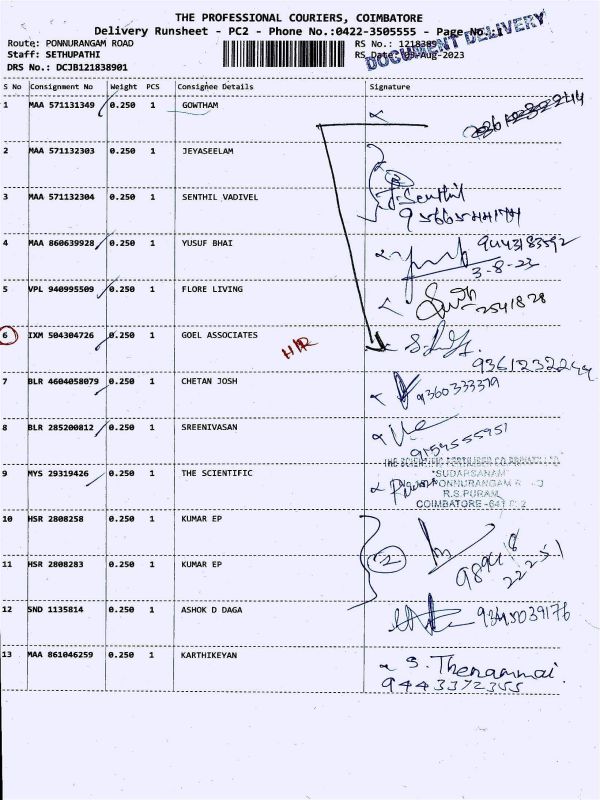 THE PROFESSIONAL COURIERS, COIMBATORE
Delivery Runsheet - PC2 - Phone No.:0422-3505555 - Page No.:1
DOCUMENT DELIVERY
Route: PONNURANGAM ROAD
RS No.: 1218389
Staff: SETHUPATHI
RS Date: 03-Aug-2023
DRS No.: DCJB121838901
S No Consignment No Weight PCS Consignee Details Signature
1 MAA 571131349 0.250 1 GOWTHAM
2 MAA 571132303 0.250 1 JEYASEELAM
3 MAA 571132304 0.250 1 SENTHIL VADIVEL Senthil
4 MAA 860639928 0.250 1 YUSUF BHAI 9443183592
3-8-23
5 VPL 940995509 0.250 1 FLORE LIVING 2541828
6 IXM 504304726 0.250 1 GOEL ASSOCIATES
9361232244
7 BLR 4604058079 0.250 1 CHETAN JOSH 9360333379
8 BLR 285200812 0.250 1 SREENIVASAN
9154555951
THE SCIENTIFIC FERTILISER CO PRIVATE LTD
"SUDARSANAM"
9 MYS 29319426 0.250 1 THE SCIENTIFIC PONNURANGAM
R.S.PURAM,
COIMBATORE-641 002
10 HSR 2808258 0.250 1 KUMAR EP
2
11 HSR 2808283 0.250 1 KUMAR EP 989418
22251
12 SND 1135814 0.250 1 ASHOK D DAGA 9345039176
13 MAA 861046259 0.250 1 KARTHIKEYAN S. Thenammai
9443372355